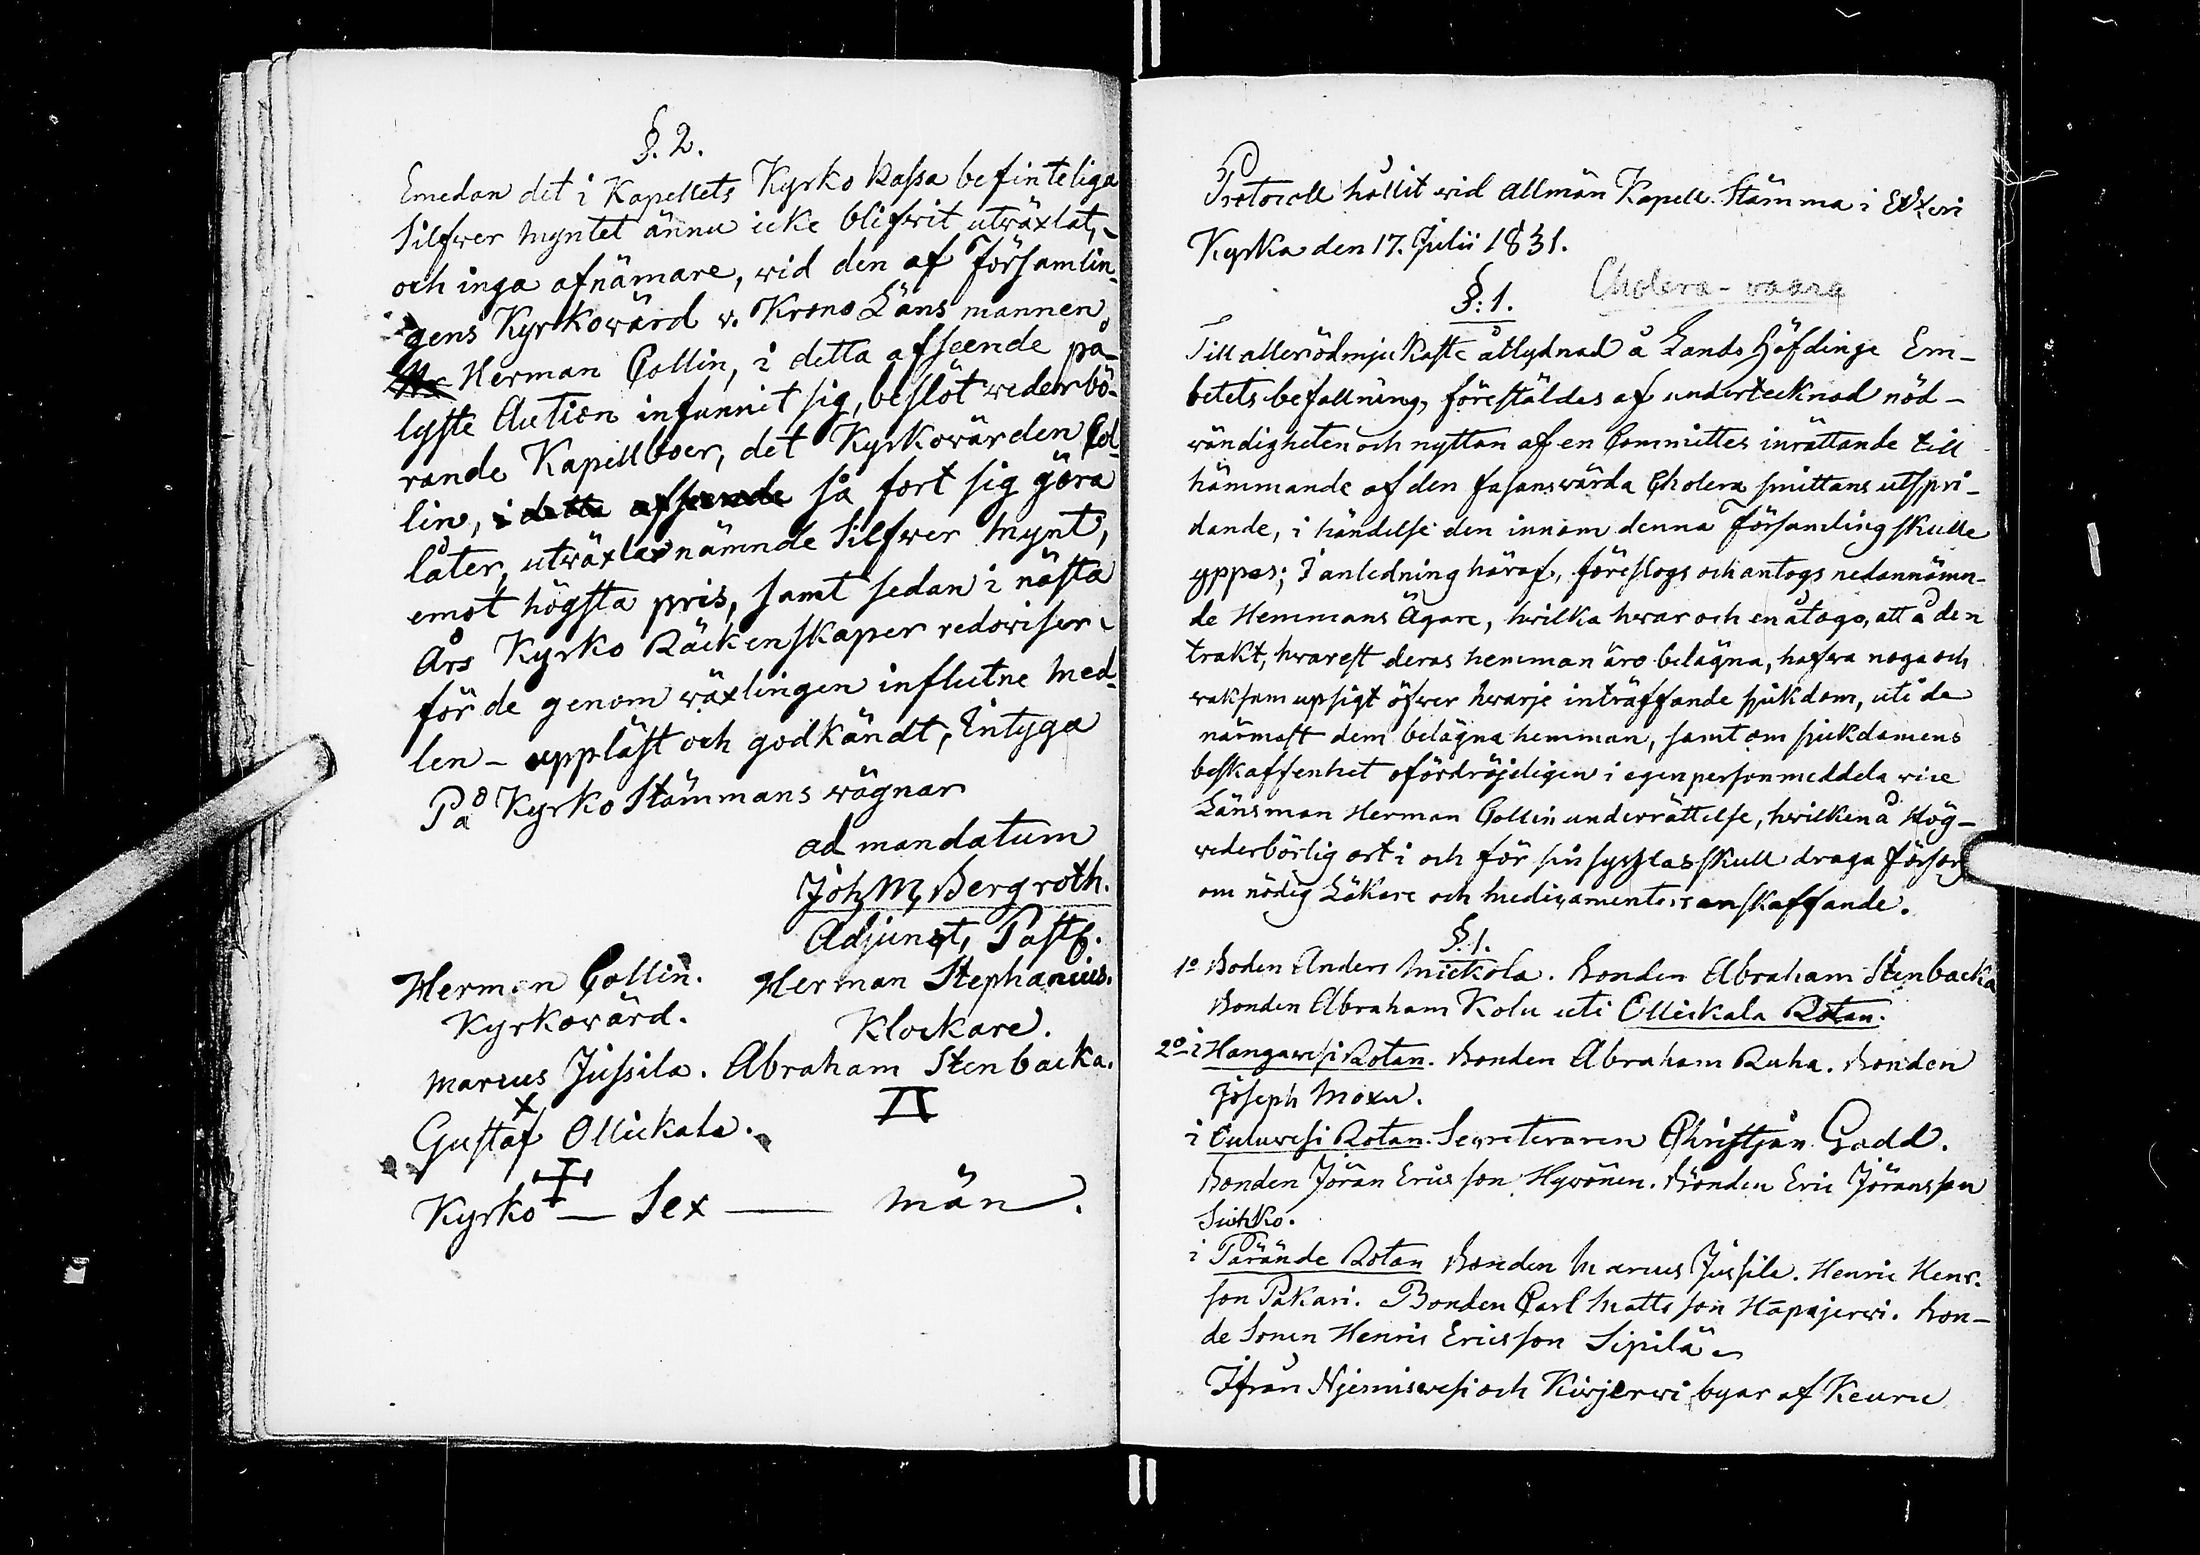 §. 2.
Emedan det i Kapellets Kyrko Kassa befinteliga
Silfwer Myntet ännu icke blifwit utwäxlat,
och inga afnämare, wid den af Församlin-
gens Kyrkowärd v. Krono Läns mannen
Herman Collin, i detta afseende på-
lyste Auction infunnit sig, beslöt wederbö-
rande Kapellboer, det Kyrkowärden Col-
lin, i detta afseende så fort sig göra
låter, utwäxlar nämnde Silfwer Mynt,
emot högsta pris, samt sedan i nästa
Års Kyrko Räckenskaper redoviser
för de genom wäxlingen influtne Med-
len – uppläst och godkändt, Intyga
På Kyrko Stämmans wägnar
ad mandatum
Joh. M. Bergroth.
Adjunct, Past.
Herman Collin. Herman Stephanius.
Kyrkowärd. Klockare.
Marcus Jussila. Abraham Stenbacka.
Gustaf Ollickala.
Kyrko — Sex — Män.
Protocoll hållit wid allmän Kapell Stämma i Etzeri
Kyrka den 17. Julii 1831.
Cholera-vaara
§: 1.
Till alleröðmjukaste åtlydnad å Lands Höfdinge Em-
betets befallning, föreställdes af undertecknad nöd-
wändigheten och nyttan af en Committes inrättande till
hämmande af den fasanswärda Cholera smittans utspri-
dande, i händelse den innom denna Församling skulle
yppas; I anledning häraf, föreslogs och antogs nedannämn-
de Hemmans Ägare, hwilka hwar och en åtogo, att å den
trakt, hwarest deras hemman äro belägna, hafwa noga och
waksam upsigt öfwer hwarje inträffande sjukdom, uti de
närmast dem belägna hemman, samt om sjukdomens
beskaffenhet ofördröjeligen i egen person meddela vice
Länsman Herman Collin underrättelse, hwilken å Hög-
wederbörlig ort i och för sin sysslas skull draga försorg
om nödig Läkare och medicamenters anskaffande.
§. 1.
1o Boden Anders Mickola. Bonden Abraham Stenbacka
Bonden Abraham Kolu uti Ollickala Rotan.
2o i Hangawesi Rotan. Bonden Abraham Ruha. Bonden
Joseph Moxu.
i Euluwesi Rotan. Secreteraren Christjan Gadd.
Bonden Jöran Ericsson Hywönen. Bonden Eric Jöransson
Suihko.
i Pärände Rotan Bonden Marcus Jussila. Henric Henr.
son Pakari. Bonden Carl Matts son Hapajerwi. Bon-
de Sonen Henric Ericsson Sipilä
Ifrån Niemiswesi och Kiwjerwi byar af Keuru